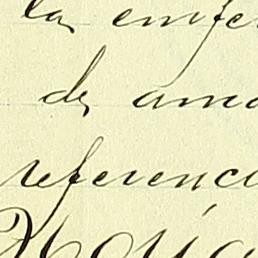 la enfe
de amo
referenci